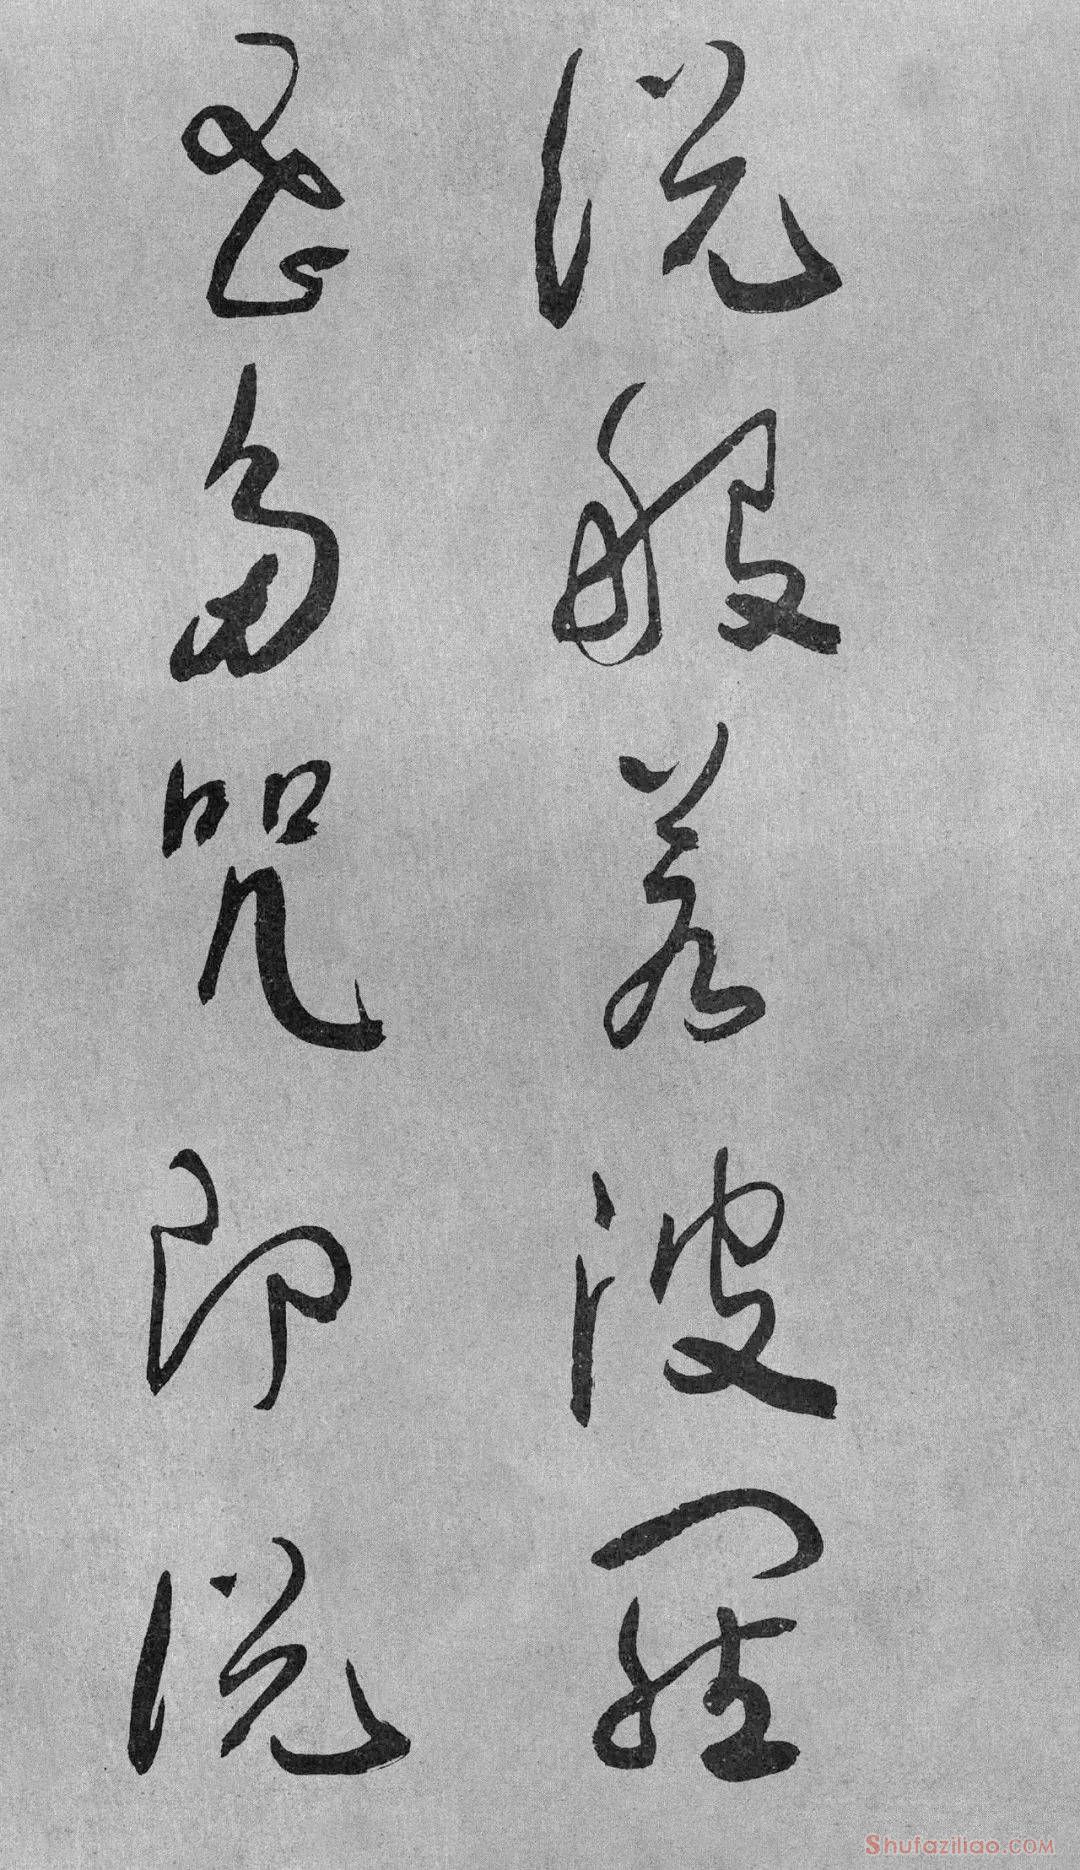 說般若波羅
蜜多咒即說
Shufaziliao.COM